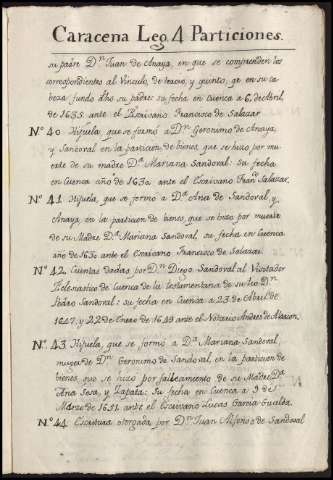 Caracena Leg. 4 Particiones.
su padre Dn. Juan de Anaya, en que se comprenden los
correspondientes al Vinculo, de tercio, y quinto, qe en su ca
beza fundo dho su padre: su fecha en Cuenca a 6, de Abril,
de 1635 ante el Escrivano Francisco de Salazar
No. 40. Hijuela, que se formó a Dn. Geronimo de Anaya,
y Sandoval en la particion de bienes que se hizo por mu
erte de su madre Da. Mariana Sandoval: su fecha
en Cuenca año de 1630 ante el Escrivano Franco. Salazar
No. 41 Hijuela, que se formo a Da. Ana de Sandoval y
Anaya en la particion de bienes, que se hizo por muerte
de su Madre Da. Mariana Sandoval, su fecha en Cuenca
año de 1630 ante el Escrivano Francisco de Salazar
No. 42 Cuentas dadas por Dn. Diego Sandoval al Visitador
Eclesiastico de Cuenca de la testamentaria de su tio Dn.
Isidro Sandoval: su fecha en Cuenca a 23 de Abril de
1647, y 22 de Enero de 1649 ante el Notario Andres de Alarcon
No. 43 Hijuela, que se formó a Da. Mariana Sandoval,
muger de Dn. Geronimo de Sandoval, en la particion de
bienes, que se hizo por fallecimiento de su Madre Da.
Ana Sesa, y Zapata: su fecha en Cuenca a 9 de
Marzo de 1651 ante el Escrivano Lucas Garcia Gualda
No. 44 Escritura otorgada por Dn. Juan Alfonso de Sandoval